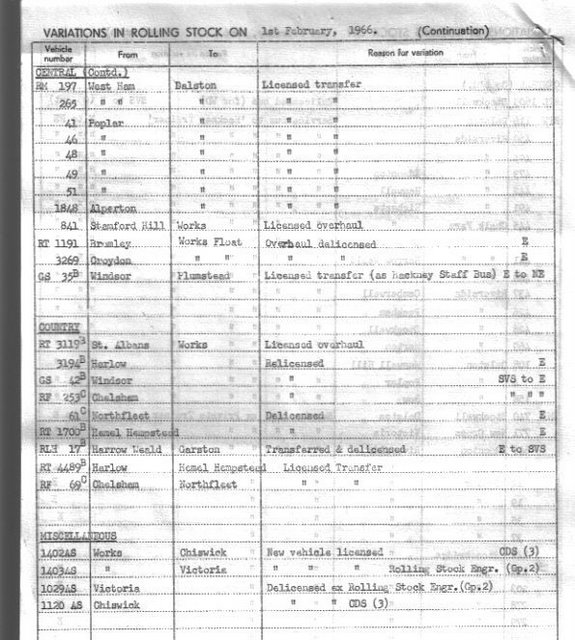 VARIATIONS IN ROLLING STOCK ON 1st February, 1966. (Continuation)
Vehicle number From To Reason for variation
CENTRAL (Contd.)
RM 197 West Ham Dalston Licensed transfer
265 " " " " "
41 Poplar " " "
46 " " " "
48 " " " "
49 " " " "
51 " " " "
1848 Alperton " " "
841 Stamford Hill Works Licensed overhaul
RT 1191 Bromley Works Float Overhaul delicensed E
3269 Croydon " " " " E
GS 35B Windsor Plumstead Licensed transfer (as Hackney Staff Bus) E to NE
COUNTRY
RT 3119B St. Albans Works Licensed overhaul
3194B Harlow Relicensed E
GS 42B Windsor " SVS to E
RF 253C Chelsham " " " "
61C Northfleet Delicensed E
RT 1700B Hemel Hempstead " E
RLH 17B Harrow Weald Garston Transferred & delicensed E to SVS
RT 4489B Harlow Hemel Hempstead Licensed Transfer
RF 69C Chelsham Northfleet " "
MISCELLANEOUS
1402AS Works Chiswick New vehicle licensed CDS (3)
1403AS " Victoria " " " Rolling Stock Engr. (Gp.2)
1029AS Victoria Delicensed ex Rolling Stock Engr.(Gp.2)
1120 AS Chiswick " " CDS (3)